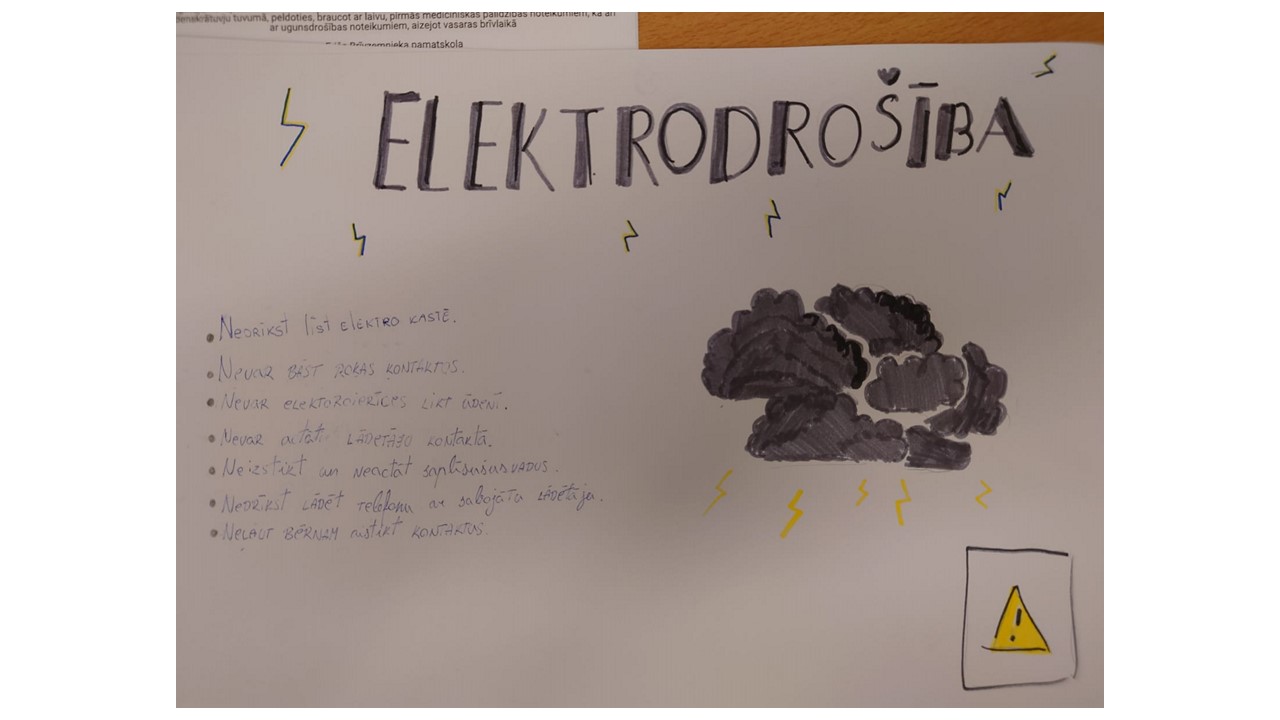 tuvumā, peldoties, braucot ar laivu, pirmās medicīniskās palīdzības noteikumiem, kā arī
ar ugunsdrošības noteikumiem, aizejot vasaras brīvlaikā
pamatskola
ELEKTRODROŠĪBA
• Nedrīkst līst elektro kastē.
• Nevar bāst rokas kontaktos.
• Nevar elektoroierīces likt ūdenī.
• Nevar atstāt lādētāju kontaktā.
• Neizstikt un saplīsušus vadus.
• Nedrīkst lādēt telefonu ar sabojātu lādētāju.
• Neļaut bērnam aistikt kontaktus.
!